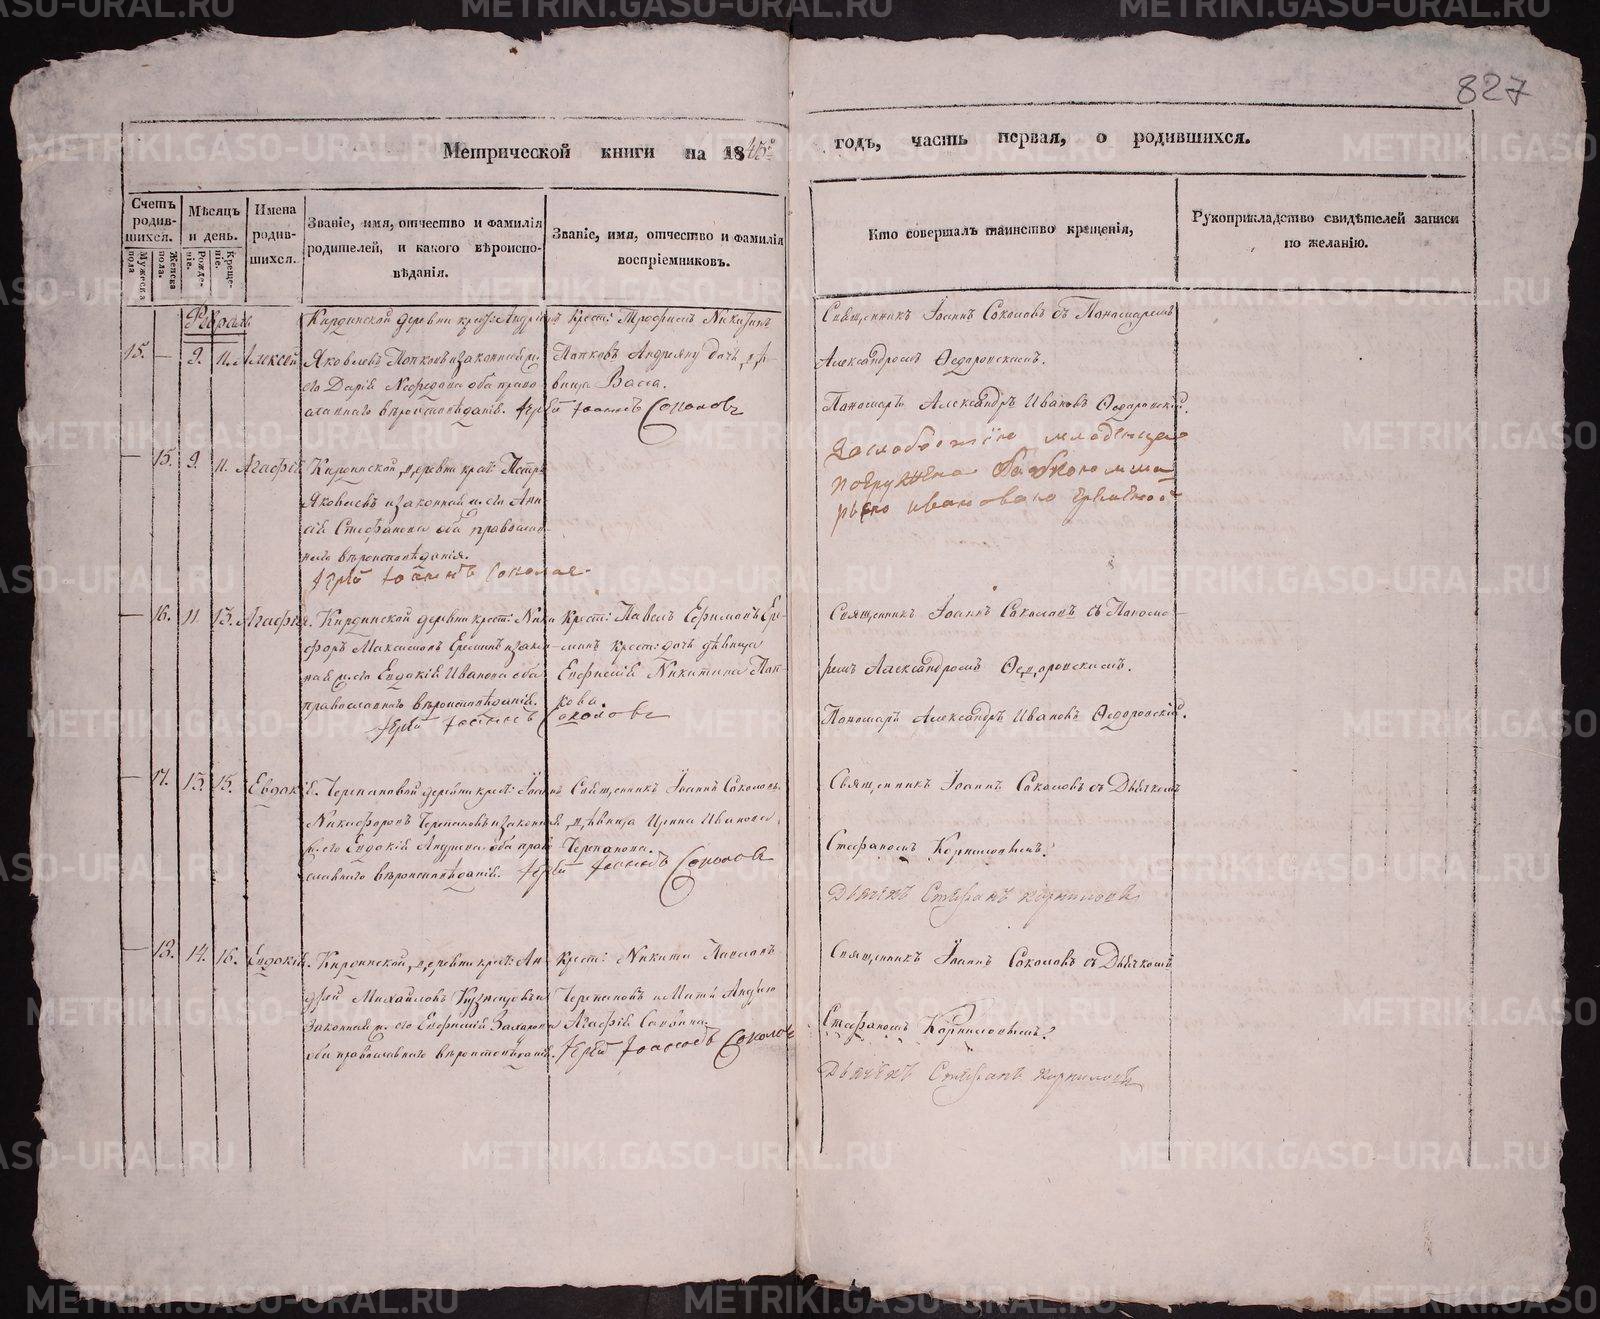 827
Метрической книги на 1845й годъ, часть первая, о родившихся.
Счетъ родив-шихся.
Мужеска пола
Женска пола.
Мѣсяцъ и день.
Рожде-ніе.
Креще-ніе.
Имена родив-шихся.
Званіе, имя, отчество и фамилія
родителей, и какого вѣроиспо-
вѣданія.
Званіе, имя, отчество и фамилія
воспріемниковъ.
Кто совершалъ таинство крещенія,
Рукоприкладство свидѣтелей записи
по желанію.
15. — 9. 11. Алексей
деревни крест: Андрей
Яковлевъ Попковъ и законная ж.
его Дарія оба право
славнаго вѣроисповѣданія. Іерей Іоаннъ Соколовъ
Крест: Трофимъ Никитинъ
Попковъ Андреяну дочь дѣ-
вица Васса.
Священникъ Іоаннъ Соколовъ съ Пономаремъ
Александромъ Ѳедоровскимъ.
Пономарь Александръ Ивановъ Ѳедоровскій.
— 15. 9. 11. Агафія
деревни крест: Петръ
Яковлевъ и законная ж. его
Стефанова оба православ-
наго вѣроисповѣданія.
Іерей Іоаннъ Соколовъ
младенца
погружена бабкою
— 16. 11 13. Агафія.
деревни крест: Ники
форъ Максимовъ Ереминъ и закон
ная ж. его Евдокія Иванова оба
православнаго вѣроисповѣданія.
Іерей Іоаннъ Соколовъ
Крест: Павелъ Ефимовъ Ере-
минъ крест: дочь дѣвица
Евфимія Никитина Поп-
кова.
Священникъ Іоаннъ Соколовъ съ Понома-
ремъ Александромъ Ѳедоровскимъ.
Пономарь Александръ Ивановъ Ѳедоровскій.
— 17. 13. 15. Евдокія.
Черепановой деревни крест: Іоаннъ
Никифоровъ Черепановъ и законная
ж. его Евдокія Андреева оба право
славнаго вѣроисповѣданія. Іерей Іоаннъ Соколовъ
Священникъ Іоаннъ Соколовъ
дѣвица Ирина Иванова
Черепанова.
Священникъ Іоаннъ Соколовъ съ Дьячкомъ
Стефаномъ Корниловымъ.
Дьячекъ Стефанъ Корниловъ
— 18. 14. 16. Евдокія.
деревни крест: Ан-
дрей Михайловъ Кузнецовъ и
законная ж. его Евфимія
оба православнаго вѣроисповѣданія. Іерей Іоаннъ Соколовъ
Крест: Никита Павловъ
Черепановъ
Агафія Саввина.
Священникъ Іоаннъ Соколовъ съ Дьячкомъ
Стефаномъ Корниловымъ.
Дьячекъ Стефанъ Корниловъ
METRIKI.GASO-URAL.RU